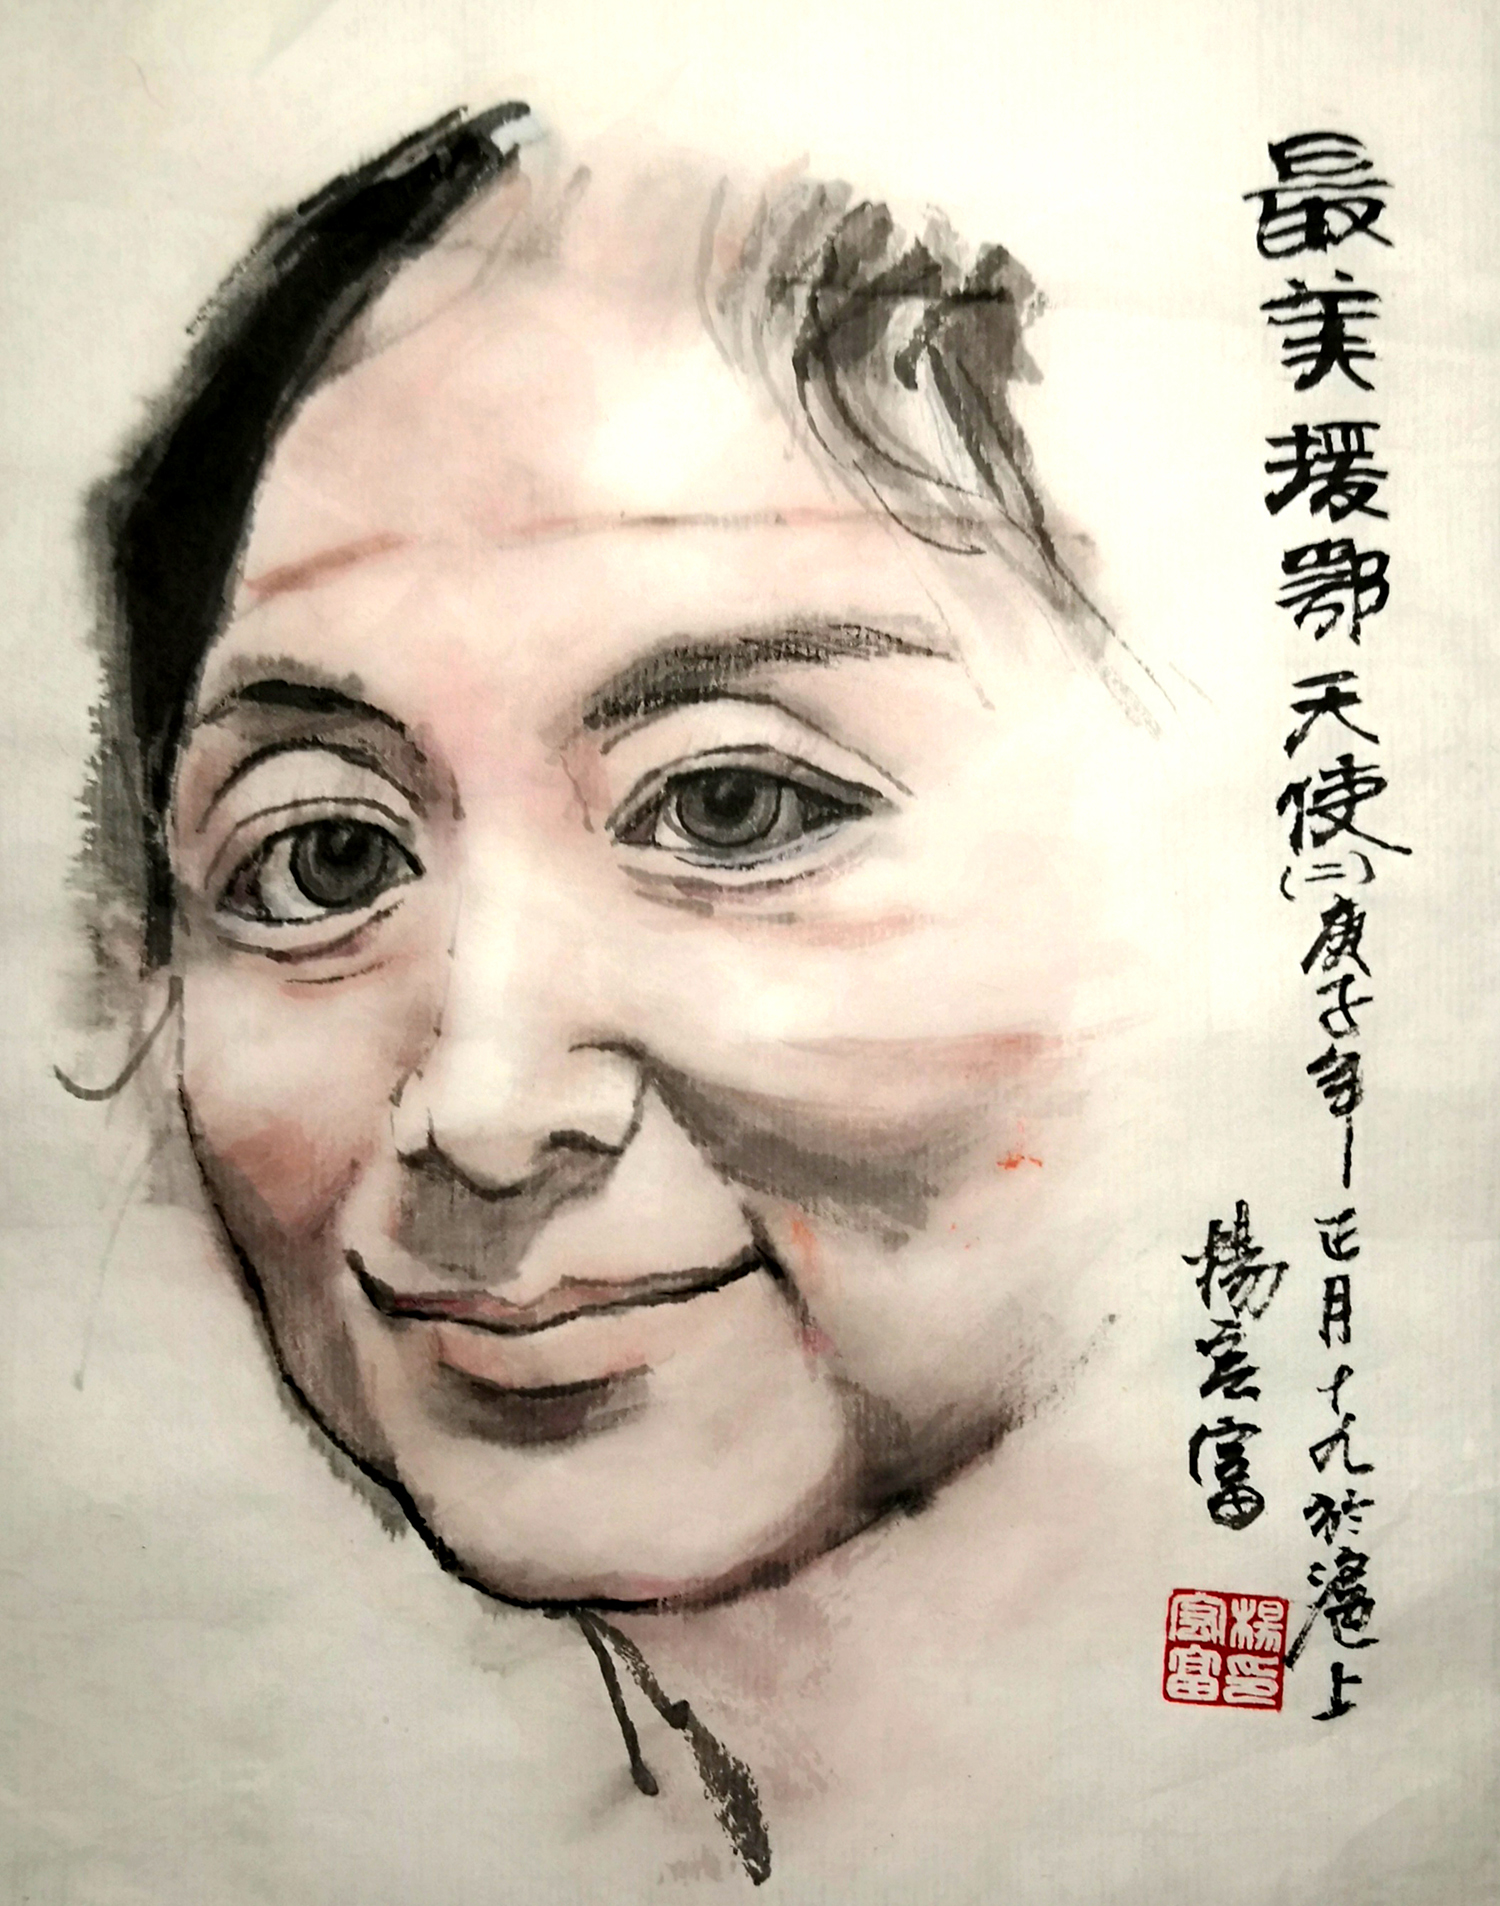 最美援鄂天使(二)庚子年—正月十九於滬上
楊宏富
楊印宏富